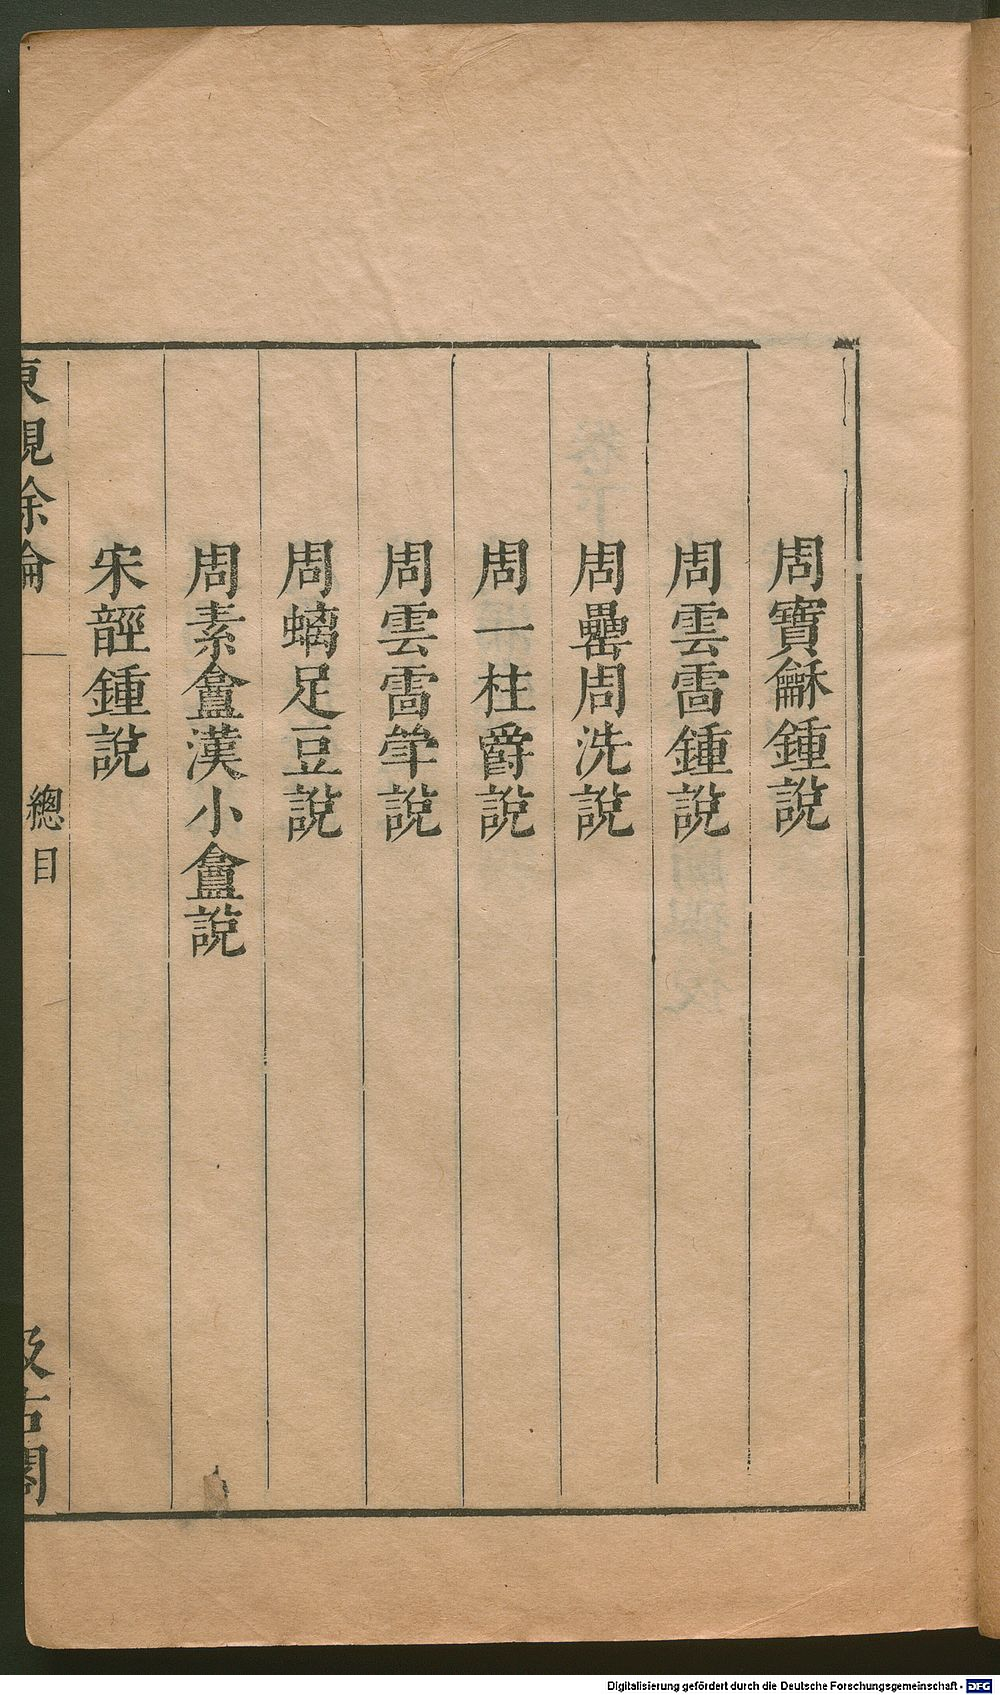 周寶龢鍾說
周雲雷鍾說
周罍周洗說
周一柱爵說
周雲雷斝說
周螭足豆說
周素盦漢小盦說
宋䪫鍾說
東觀餘論
總目
汲古閣
Digitalisierung gefördert durch die Deutsche Forschungsgemeinschaft - DFG